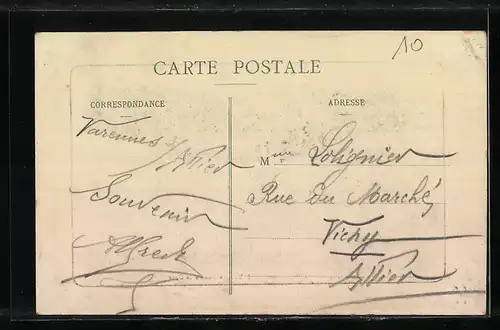 10
CARTE POSTALE
CORRESPONDANCE
Varennes s/
Allier
Souvenir
Alfred
ADRESSE
Mme Lolignier
Rue du Marché
Vichy
Allier